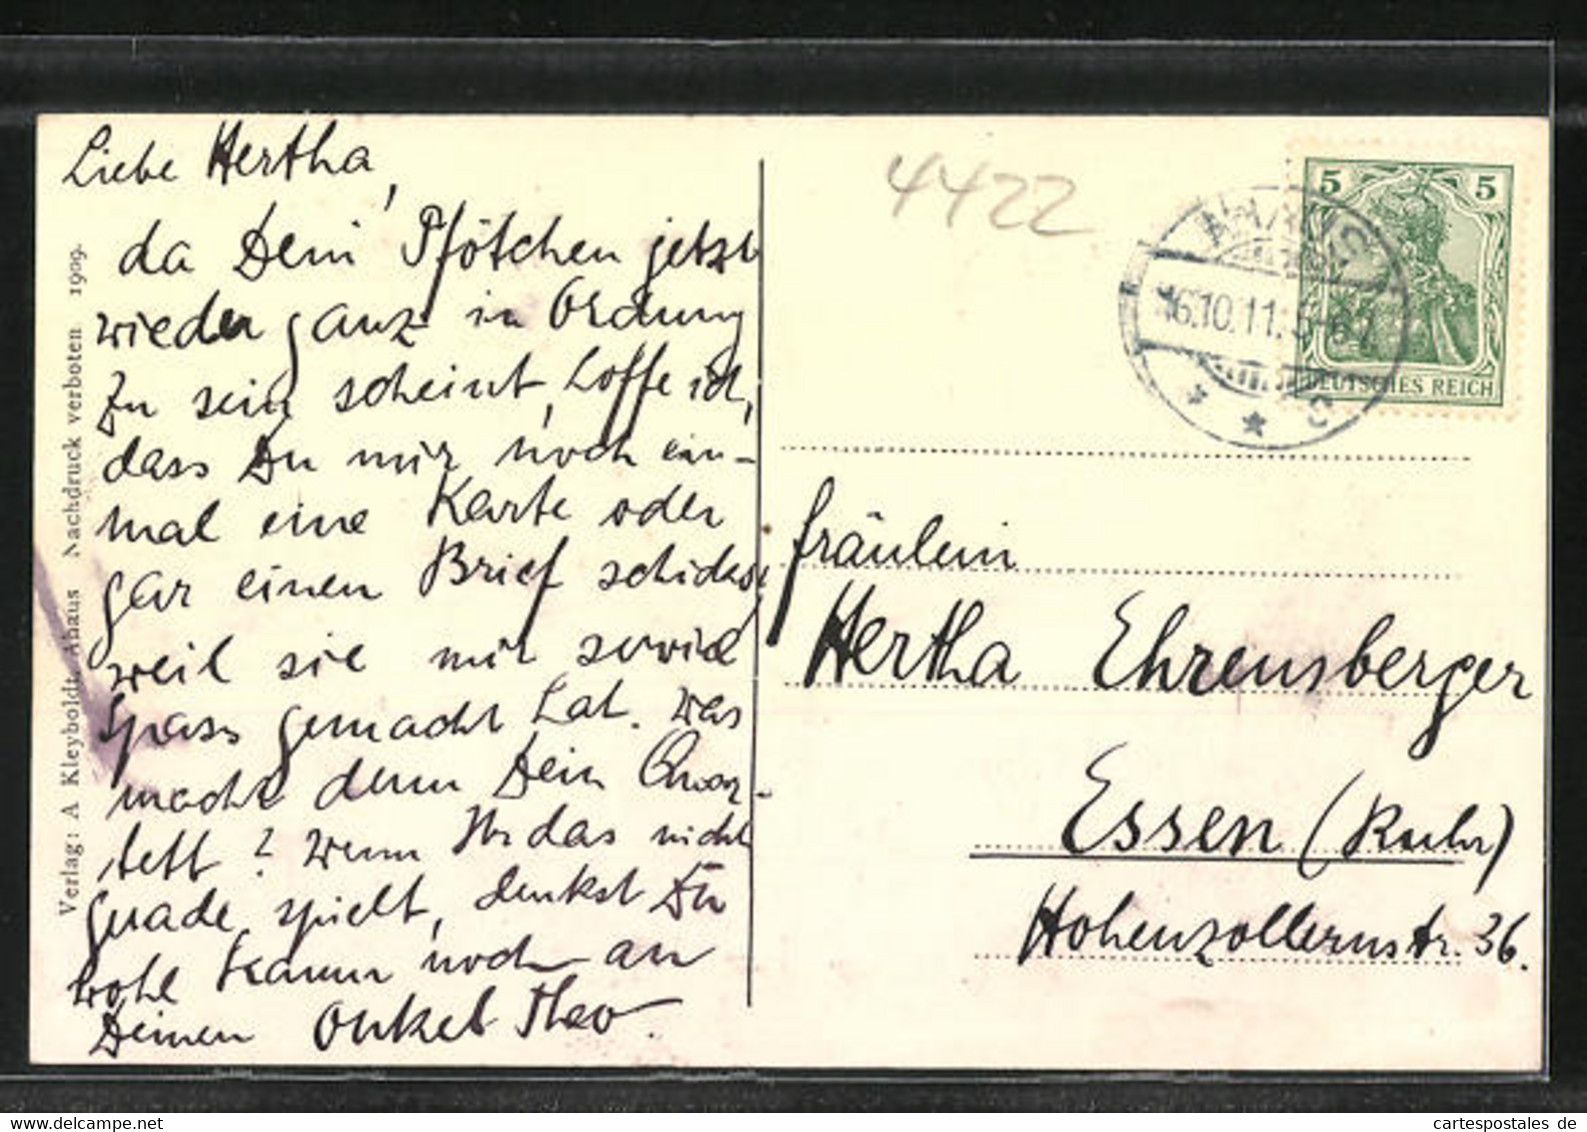 Liebe Hertha,
da Dein Pfötchen jetzt
wieder ganz in Ordnung
zu sein scheint, hoffe ich,
dass Du mir noch ein-
mal eine Karte oder
gar einen Brief schickst,
weil sie mir soviel
Spass gemacht hat. Was
macht denn Dein Quar-
tett? Wenn Ihr das nicht
gerade spielt, denkst Du
wohl kaum noch an
Deinen Onkel Theo.
Verlag: A Kleyboldt, Ahaus Nachdruck verboten 1909.
4422
5 5
DEUTSCHES REICH
AHAUS
16.10.11. 5-6
c
Fräulein
Hertha Ehrensberger
Essen (Ruhr)
Hohenzollernstr. 36.
cartespostales de